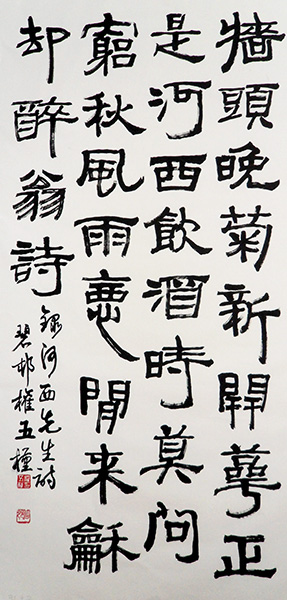 牆頭晚菊新開蕚正
是河西飲酒時莫問
窮秋風雨惡閒来龢
却醉翁詩
錄河西先生詩
碧邨權五